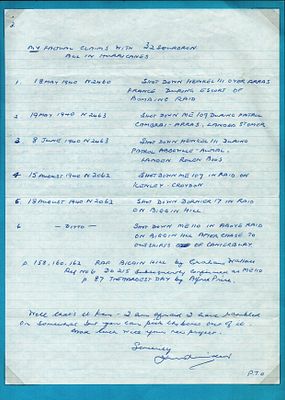 2
MY FACTUAL CLAIMS WITH 32 SQUADRON
ALL IN HURRICANES
1. 18 MAY 1940 N2460 SHOT DOWN HEINKEL 111 OVER ARRAS
FRANCE DURING ESCORT OF
BOMBING RAID
2 19 MAY 1940 N2463 SHOT DOWN ME 109 DURING PATROL
CAMBRAI-ARRAS, LANDED ST OMER
3 8 JUNE 1940 N2463 SHOT DOWN HEINKEL 111 DURING
PATROL ABBEVILLE-AUMAL.
LANDED ROUEN BOOS
4 15 AUGUST 1940 N2463 SHOT DOWN ME 109 IN RAID ON
KENLEY-CROYDON
5 18 AUGUST 1940 N2063 SHOT DOWN DORNIER 17 IN RAID
ON BIGGIN HILL
6 — DITTO — SHOT DOWN ME 110 IN ABOVE RAID
ON BIGGIN HILL AFTER CHASE TO
OUTSKIRTS OF CANTERBURY
p. 158, 160, 162 RAF BIGGIN HILL by Graham Wallace
Ref No 6 DO 215 Subsequently confirmed as ME 110
p. 87 THE HARDEST DAY by Alfred Price.
Well that's it then - I am afraid I have rambled
on somewhat but you can pick the bones out of it.
Good luck with your new project.
Sincerely
P.T.O